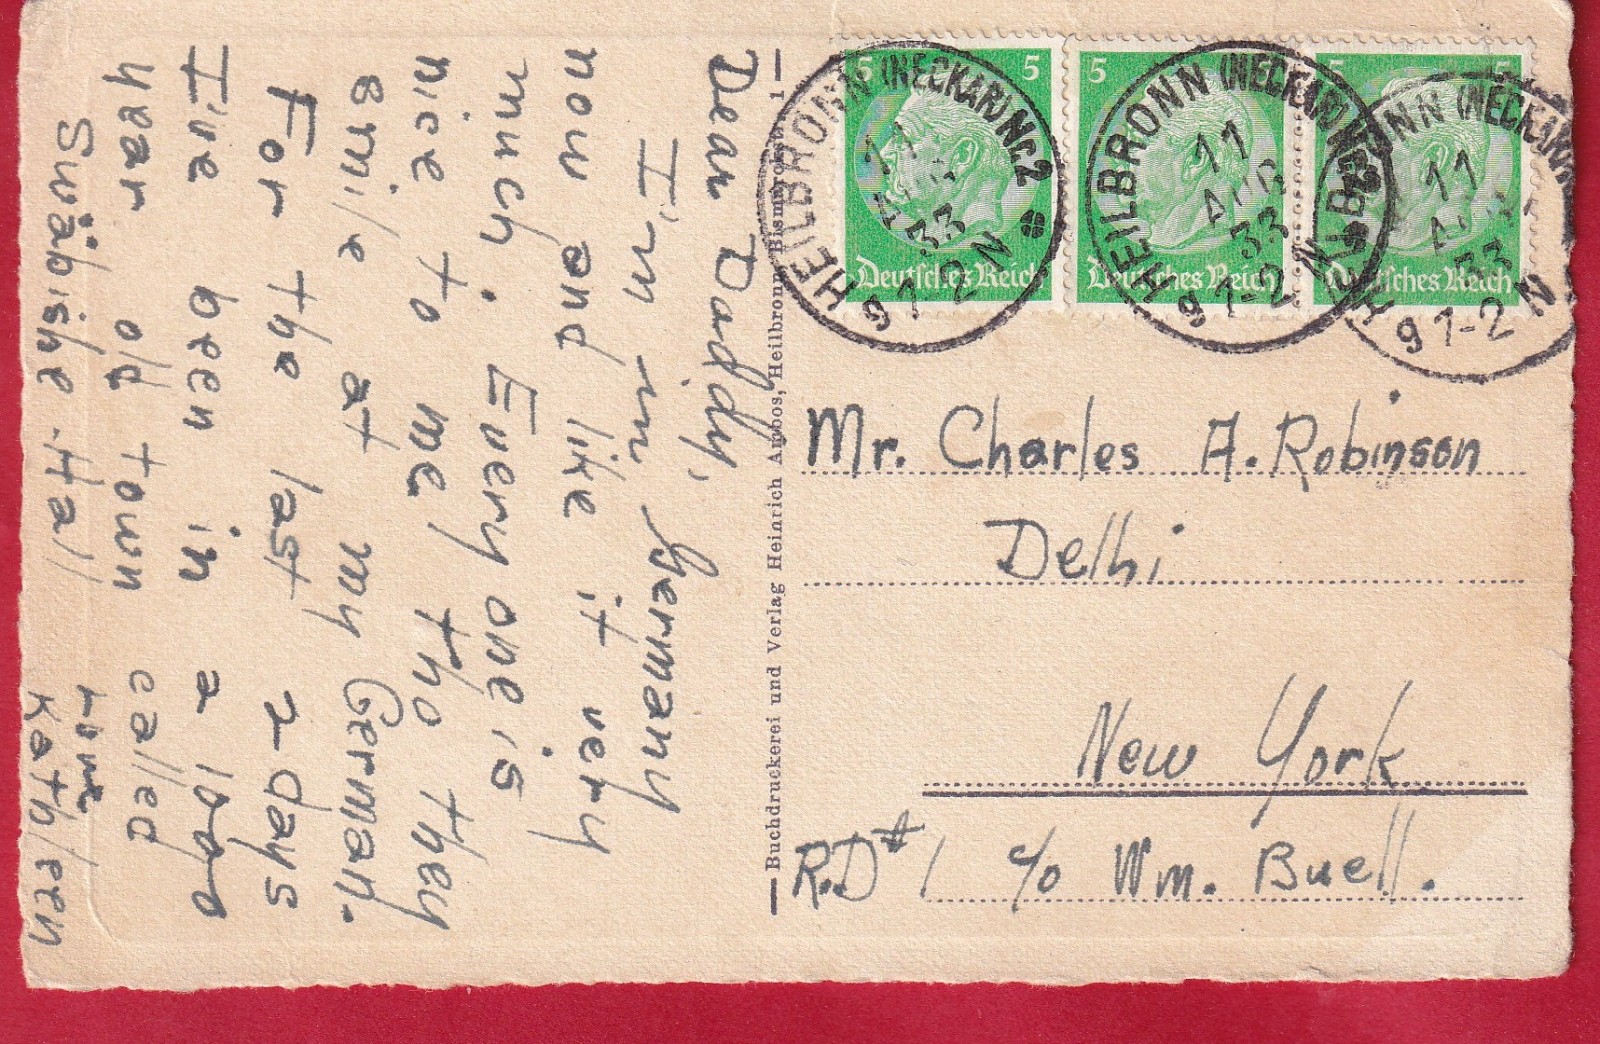 Dear Daddy,
I'm in Germany
now and like it very
much. Every one is
nice to me, tho they
smile at my German.
For the last 2 days
I've been in a
year old town called
Swäbishe-Hall
Love
Kathleen
Buchdruckerei und Verlag Heinrich Ambos, Heilbronn, Bismarckstr. 1
5 5
Deutsches Reich
5
Deutsches Reich
5
Deutsches Reich
HEILBRONN (NECKAR) Nr. 2
11
AUG
33
9 1-2 N
HEILBRONN (NECKAR) Nr. 2
11
AUG
33
9 1-2 N
HEILBRONN (NECKAR)
11
AUG
33
9 1-2 N
Mr. Charles A. Robinson
Delhi
New York
R.D #1 c/o Wm. Buell.